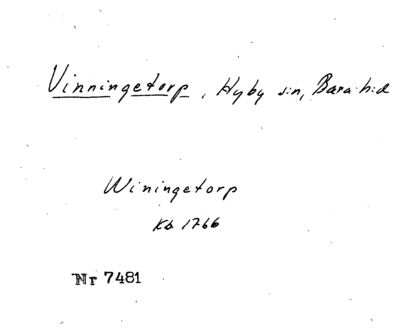 Vinningetorp, Hyby s:n, Bara h:d
Winingetorp
Kb 1766
Nr 7481